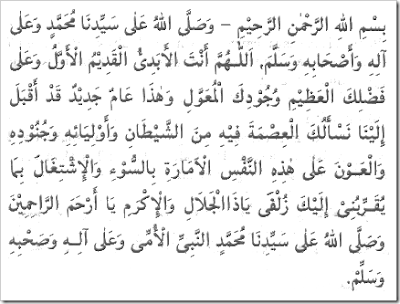 بِسْمِ اللهِ الرَّحْمٰنِ الرَّحِيْمِ – وَصَلَّى اللهُ عَلٰى سَيِّدِنَا مُحَمَّدٍ وَعَلٰى
آلِهِ وَأَصْحَابِهِ وَسَلَّمَ. اَللّٰهُمَّ أَنْتَ الْأَبَدِىُّ الْقَدِيْمُ الْأَوَّلُ وَعَلٰى
فَضْلِكَ الْعَظِيْمِ وَجُوْدِكَ الْمُعَوَّلِ وَهٰذَا عَامٌ جَدِيْدٌ قَدْ أَقْبَلَ
إِلَيْنَا نَسْأَلُكَ الْعِصْمَةَ فِيْهِ مِنَ الشَّيْطَانِ وَأَوْلِيَائِهِ وَجُنُوْدِهِ
وَالْعَوْنَ عَلٰى هٰذِهِ النَّفْسِ الْأَمَارَةِ بِالسُّوْءِ وَالْإِشْتِغَالَ بِمَا
يُقَرِّبُنِيْ إِلَيْكَ زُلْفَى يَاذَاالْجَلَالِ وَالْإِكْرَمِ يَا أَرْحَمَ الرَّاحِمِيْنَ
وَصَلَّى اللهُ عَلٰى سَيِّدِنَا مُحَمَّدٍ النَّبِيِّ الْأُمِّى وَعَلٰى آلِهِ وَصَحْبِهِ
وَسَلِّمْ.